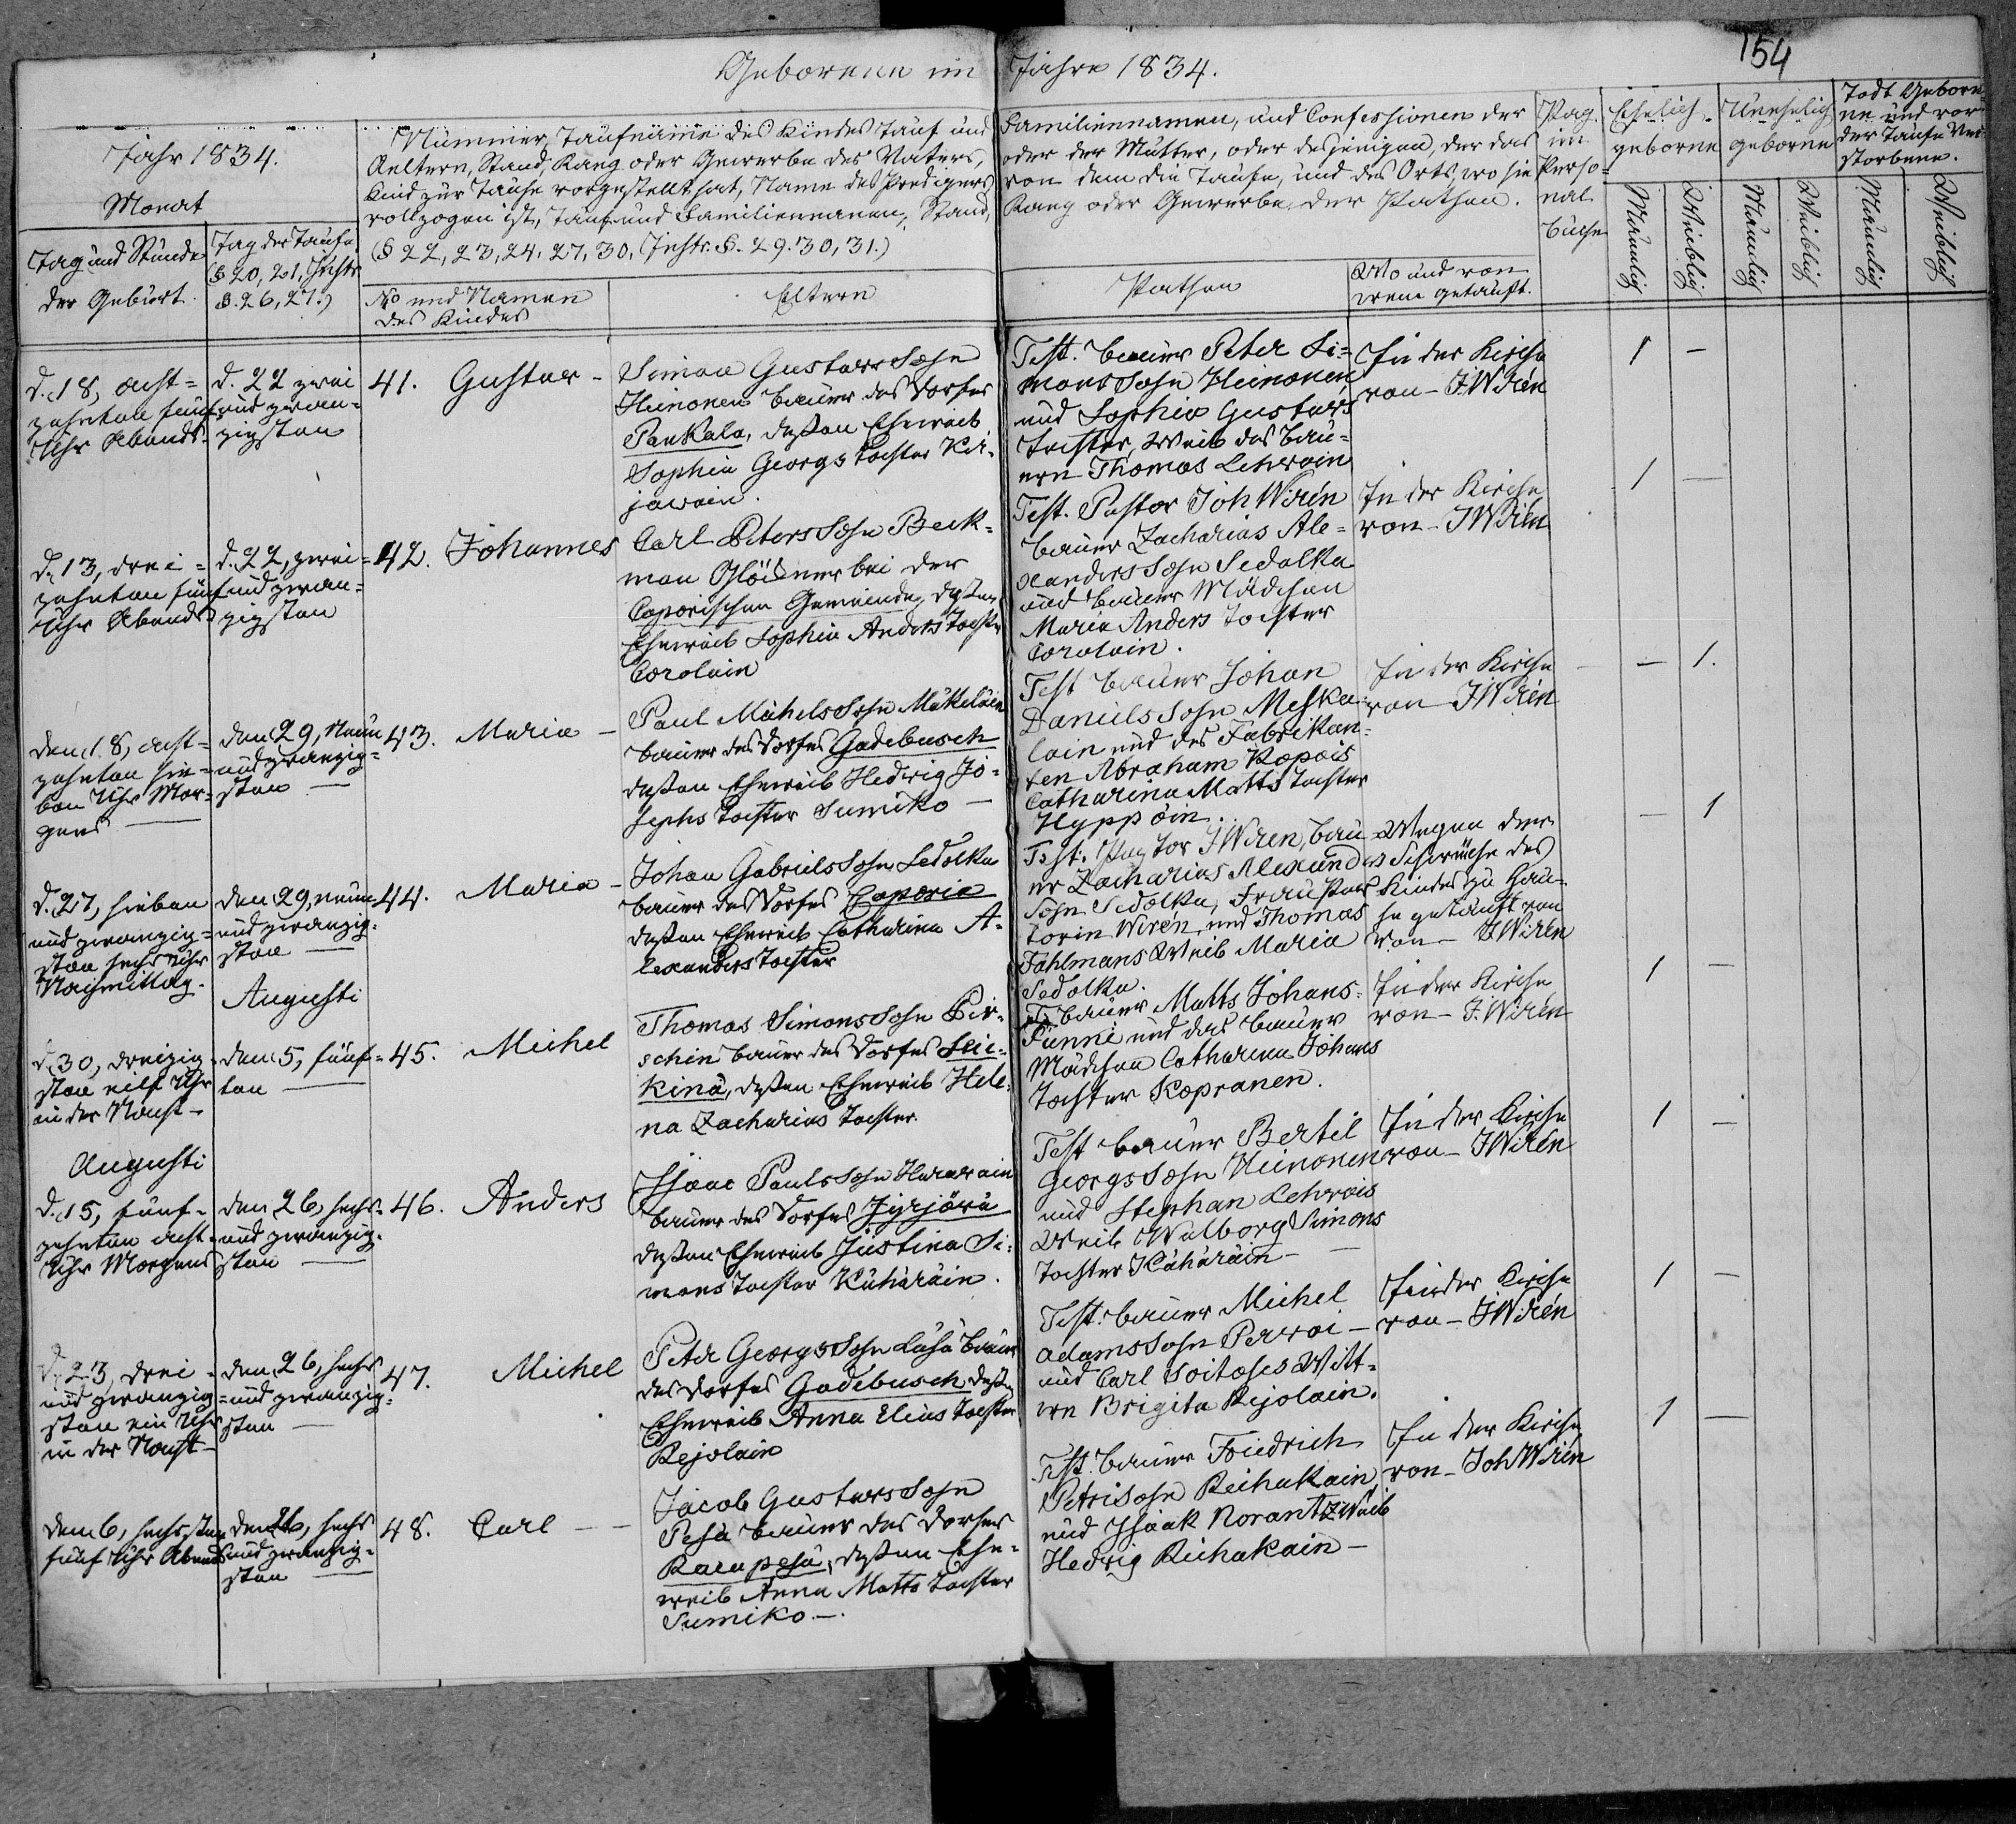 154
Geborene im Jahre 1834.
Jahr 1834.
Monat
Tag und Stunde
der Geburt
Tag der Taufe
(§ 20, 21, Instr.
§. 26, 27.)
Nummer, Taufname des Kindes Tauf und
Aeltern, Stand, Rang oder Gewerbe des Vaters,
Kind zur Taufe vorgestellt hat, Name des Predigers
vollzogen ist, Tauf und Familiennamen, Stand,
(§ 22, 23, 24. 27, 30, Instr. §. 29. 30, 31.)
No und Namen
des Kindes
Eltern
Familiennamen, und Confessionen der
oder der Mutter, oder desjenigen, der das
von dem die Taufe, und des Orts, wo sie
Rang oder Gewerbe der Pathen.
Pathen
Wo und von
wem getauft.
Pag.
im
Perso=
nal
buche
Ehelich
geborne
Unehelich
geborne
Todt Gebore=
ne und vor
der Taufe Ver
storbene.
Männlich
Weiblich
Männlich
Weiblich
Männlich
Weiblich
d. 18, acht=
zehnten fünf
Uhr Abends.
d. 22 zwei
und zwan=
zigsten
41. Gustav -
Simon Gustavs Sohn
Heinonen bauer des Dorfes
Paukala, deßen Eheweib
Sophia Georgs tochter Kir=
jawain.
Test. bauer Peter Si=
mons Sohn Heinonen
und Sophia Gustavs
tochter, Weib des bau=
ern Thomas Lehwain
In der Kirche
von - J. Wirén
1 -
d. 13, drei=
zehnten fünf
Uhr Abends
d. 22, zwei=
und zwan=
zigsten
42. Johannes
Carl Peters Sohn Beck=
man Glöckner bei der
Caporischen Gemeinde, deßen
Eheweib Sophia Anders Tochter
Corolain
Test. Pastor Joh Wirén
bauer Zacharias Ale=
xanders Sohn Sedolka
und bauer Mädchen
Maria Anders tochter
Corolain.
In der Kirche
von - J Wirén
1 -
den 18, acht=
zehnten sie=
ben Uhr Mor=
gens
den 29, Neun
und zwanzig=
sten
43. Maria -
Paul Michels Sohn Mäkeläin
bauer des Dorfes Gadebusch
deßen Eheweib Hedwig Jo=
sephs tochter Sumiko -
Test bauer Johan
Daniels Sohn Meska=
lain und des Fabrikan=
ten Abraham Kopois
Catharina Matts tochter
Hyppöin.
In der Kirche
von J Wirén
- 1.
d. 27, sieben
und zwanzig=
sten sechs Uhr
Nachmittag.
den 29, neun
und zwanzig=
sten
44. Maria -
Johan Gabriels Sohn Sedolka
bauer des Dorfes Caporie
deßen Eheweib Catharina A=
lexanders tochter
Test: Pastor J Wiren, bau=
er Zacharias Alexanders
Sohn Sedolka, Frau Pas=
torin Wirén, und Thomas
Fahlmans Weib Maria
Sedolka.
Wegen der
Schwäche des
Kindes zu Hau=
se getauft von
von - J Wirén
- 1
Augusti
d. 30, dreizig
sten eilf Uhr
in der Nacht -
den 5, fünf=
ten
45. Michel
Thomas Simons Sohn Pir=
schin bauer des Dorfes Slie=
kina, deßen Eheweib Hele=
na Zacharias tochter
T. bauer Matts Johans=
Funni und des bauer
Mädchen Catharina Johans
tochter Kopranen.
In der Kirche
von - J. Wirén
1 -
Augusti
d. 15, fünf=
zehnten acht
Uhr Morgens
den 26, sechs=
und zwanzig=
sten
46. Anders
Isaac Pauls Sohn Harawain
bauer des Dorfes Jyrjövä
deßen Eheweib Justina Si=
mons tochter Kähäräin.
Test bauer Bertil
Georgs Sohn Heinonen
und Stephan Lehwois
Weib Walborg Simons
tochter Kähäräin -
In der Kirche
von - J Wirén
1 -
d. 23, drei=
und zwanzig=
sten ein Uhr
in der Nacht -
den 26, sechs
und zwanzig=
sten
47. Michel
Peter Georgs Sohn Läsä bauer
des Dorfes Gadebusch, deßen
Eheweib Anna Elias tochter
Rejolain
Test. bauer Michel
Adams Sohn Perwoi -
und Carl Soitoses Witt=
we Brigita Rejolain.
In der Kirche
von - J Wirén
1 -
den 6, sechsten
fünf Uhr Abends
den 26, sechs
und zwanzig=
sten
48. Carl -
Jacob Gustavs Sohn
Pesä bauer des Dorfes
Karupesä, deßen Ehe=
weib Anna Matts tochter
Sumiko. -
Test. bauer Friedrich
Petri Sohn Reihakain
und Isaak Norantz Weib
Hedwig Reihakain -
In der Kirche
von - Joh Wirén
1 -